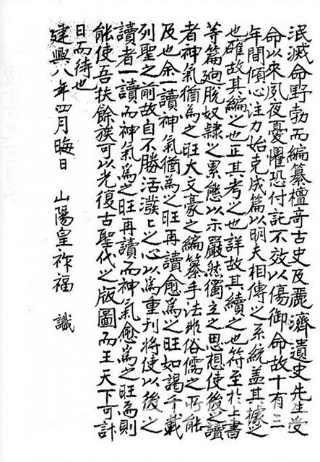 泯滅命野勃而編纂檀奇古史及麗濟遺史先生受
命以來夙夜憂懼恐付託不效以傷御命故十有三
年間傾心注力始克成篇以明天相傳之系統盖其據之
也確故其編之也正其考之也詳故其續之也符至於上書
等篇廻脫奴隸之累態以示嚴然獨立之思想使後之讀
者神氣猶為之旺大文豪之編纂手法非俗儒之所能
及也余一讀神氣猶為之旺再讀愈為之旺如謁千載
列聖之前故自不勝活潑〻之心以為重刋將使以後之
讀者一讀而神氣為之旺再讀而神氣愈為之旺而則
能使吾扶餘族可以光復古聖代之版圖而王天下可計
日而待也
建興八年四月晦日 山陽皇祚福 識